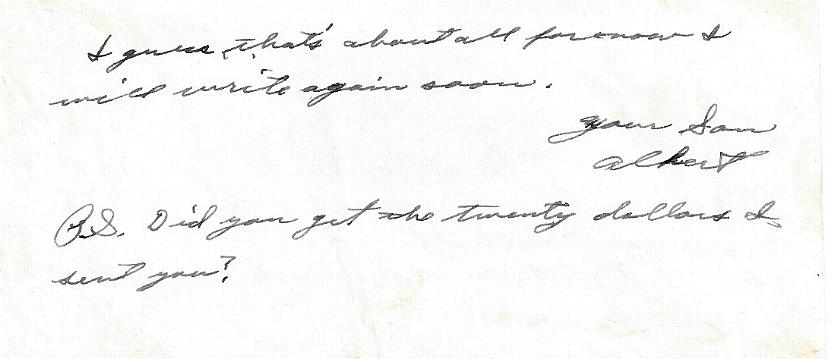 I guess, that's about all for now I
will write again soon.
Your Son
Albert
P.S. Did you get the twenty dollars I
sent you?